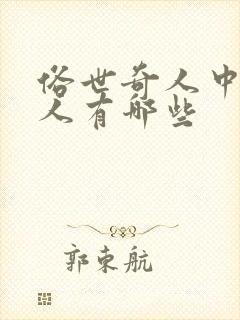 俗世奇人中
人有哪些
郭东航